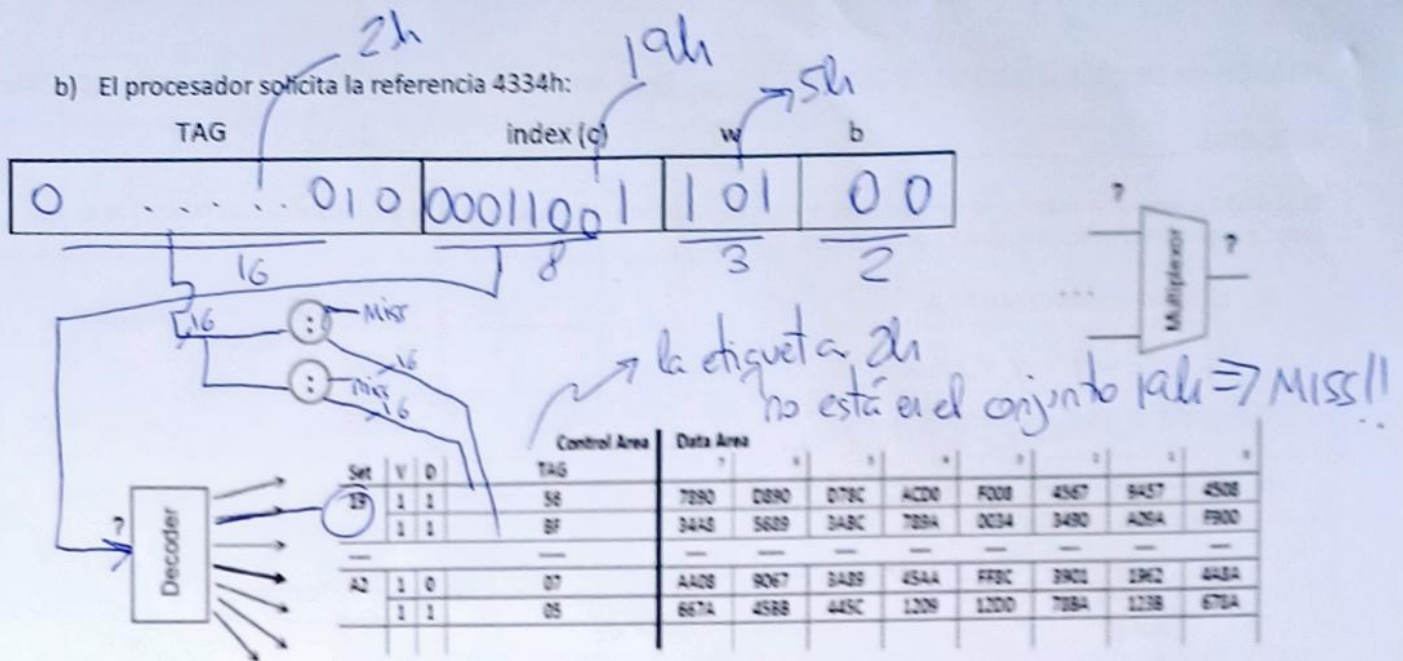 2h
19h
5h
b) El procesador solicita la referencia 4334h:
TAG index (c) w b
0 ...... 010 00011001 101 00
16 8 3 2
?
?
Multiplexor
...
16 : Miss
16
: Miss
16
la etiqueta 2h
no está en el conjunto 19h => MISS!!
Control Area Data Area
Set V D TAG 7 6 5 4 3 2 1 0
19 1 1 58 7890 D890 D78C ACD0 F008 4567 9457 4508
1 1 BF 34A8 5689 3ABC 789A 0034 3490 F900
— — — — — — — — — —
A2 1 0 07 AA08 9067 3A89 45AA FFBC 3901 1962 4A8A
1 1 05 667A 45BB 445C 1209 12DD 788A 123B 678A
?
Decoder